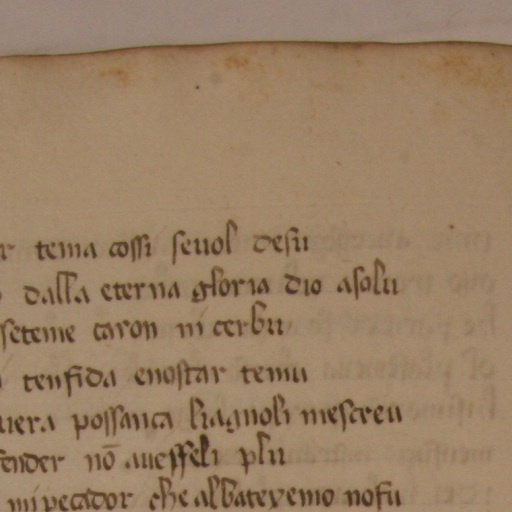 r tema cossi seuol desu
dalla eterna gloria dio asolu
seteme caron ni cerbu
tenfida enostar temu
uera possanca liagnoli mescreu
fender nō auessel plu
mi pecador che albatexemo nofu